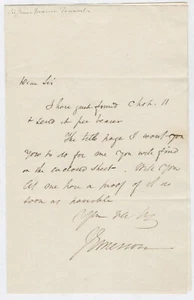 Dear Sir
I have just found Chap. 11
& send it per bearer
The title page I want you
you to do for me you will find
on the enclosed sheet. Will you
let me have a proof of it as
soon as possible
Yours